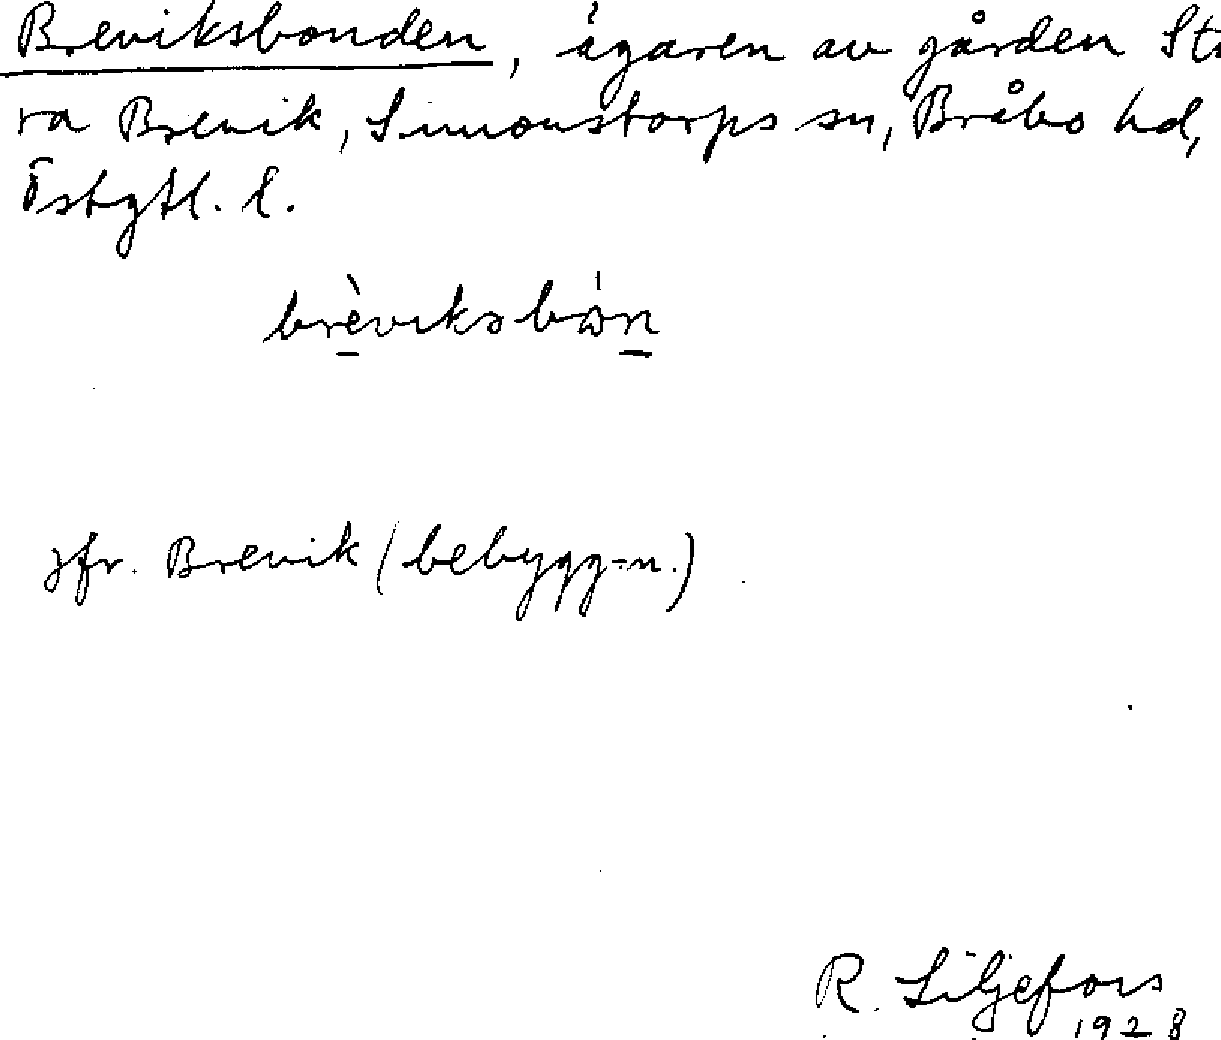 Breviksbonden, ägaren av gården Sto
ra Brevik, Simonstorps sn, Bråbo hd,
Östgtl. l.
brèviksbón
jfr. Brevik (bebygg-n.)
R. Liljefors
1928